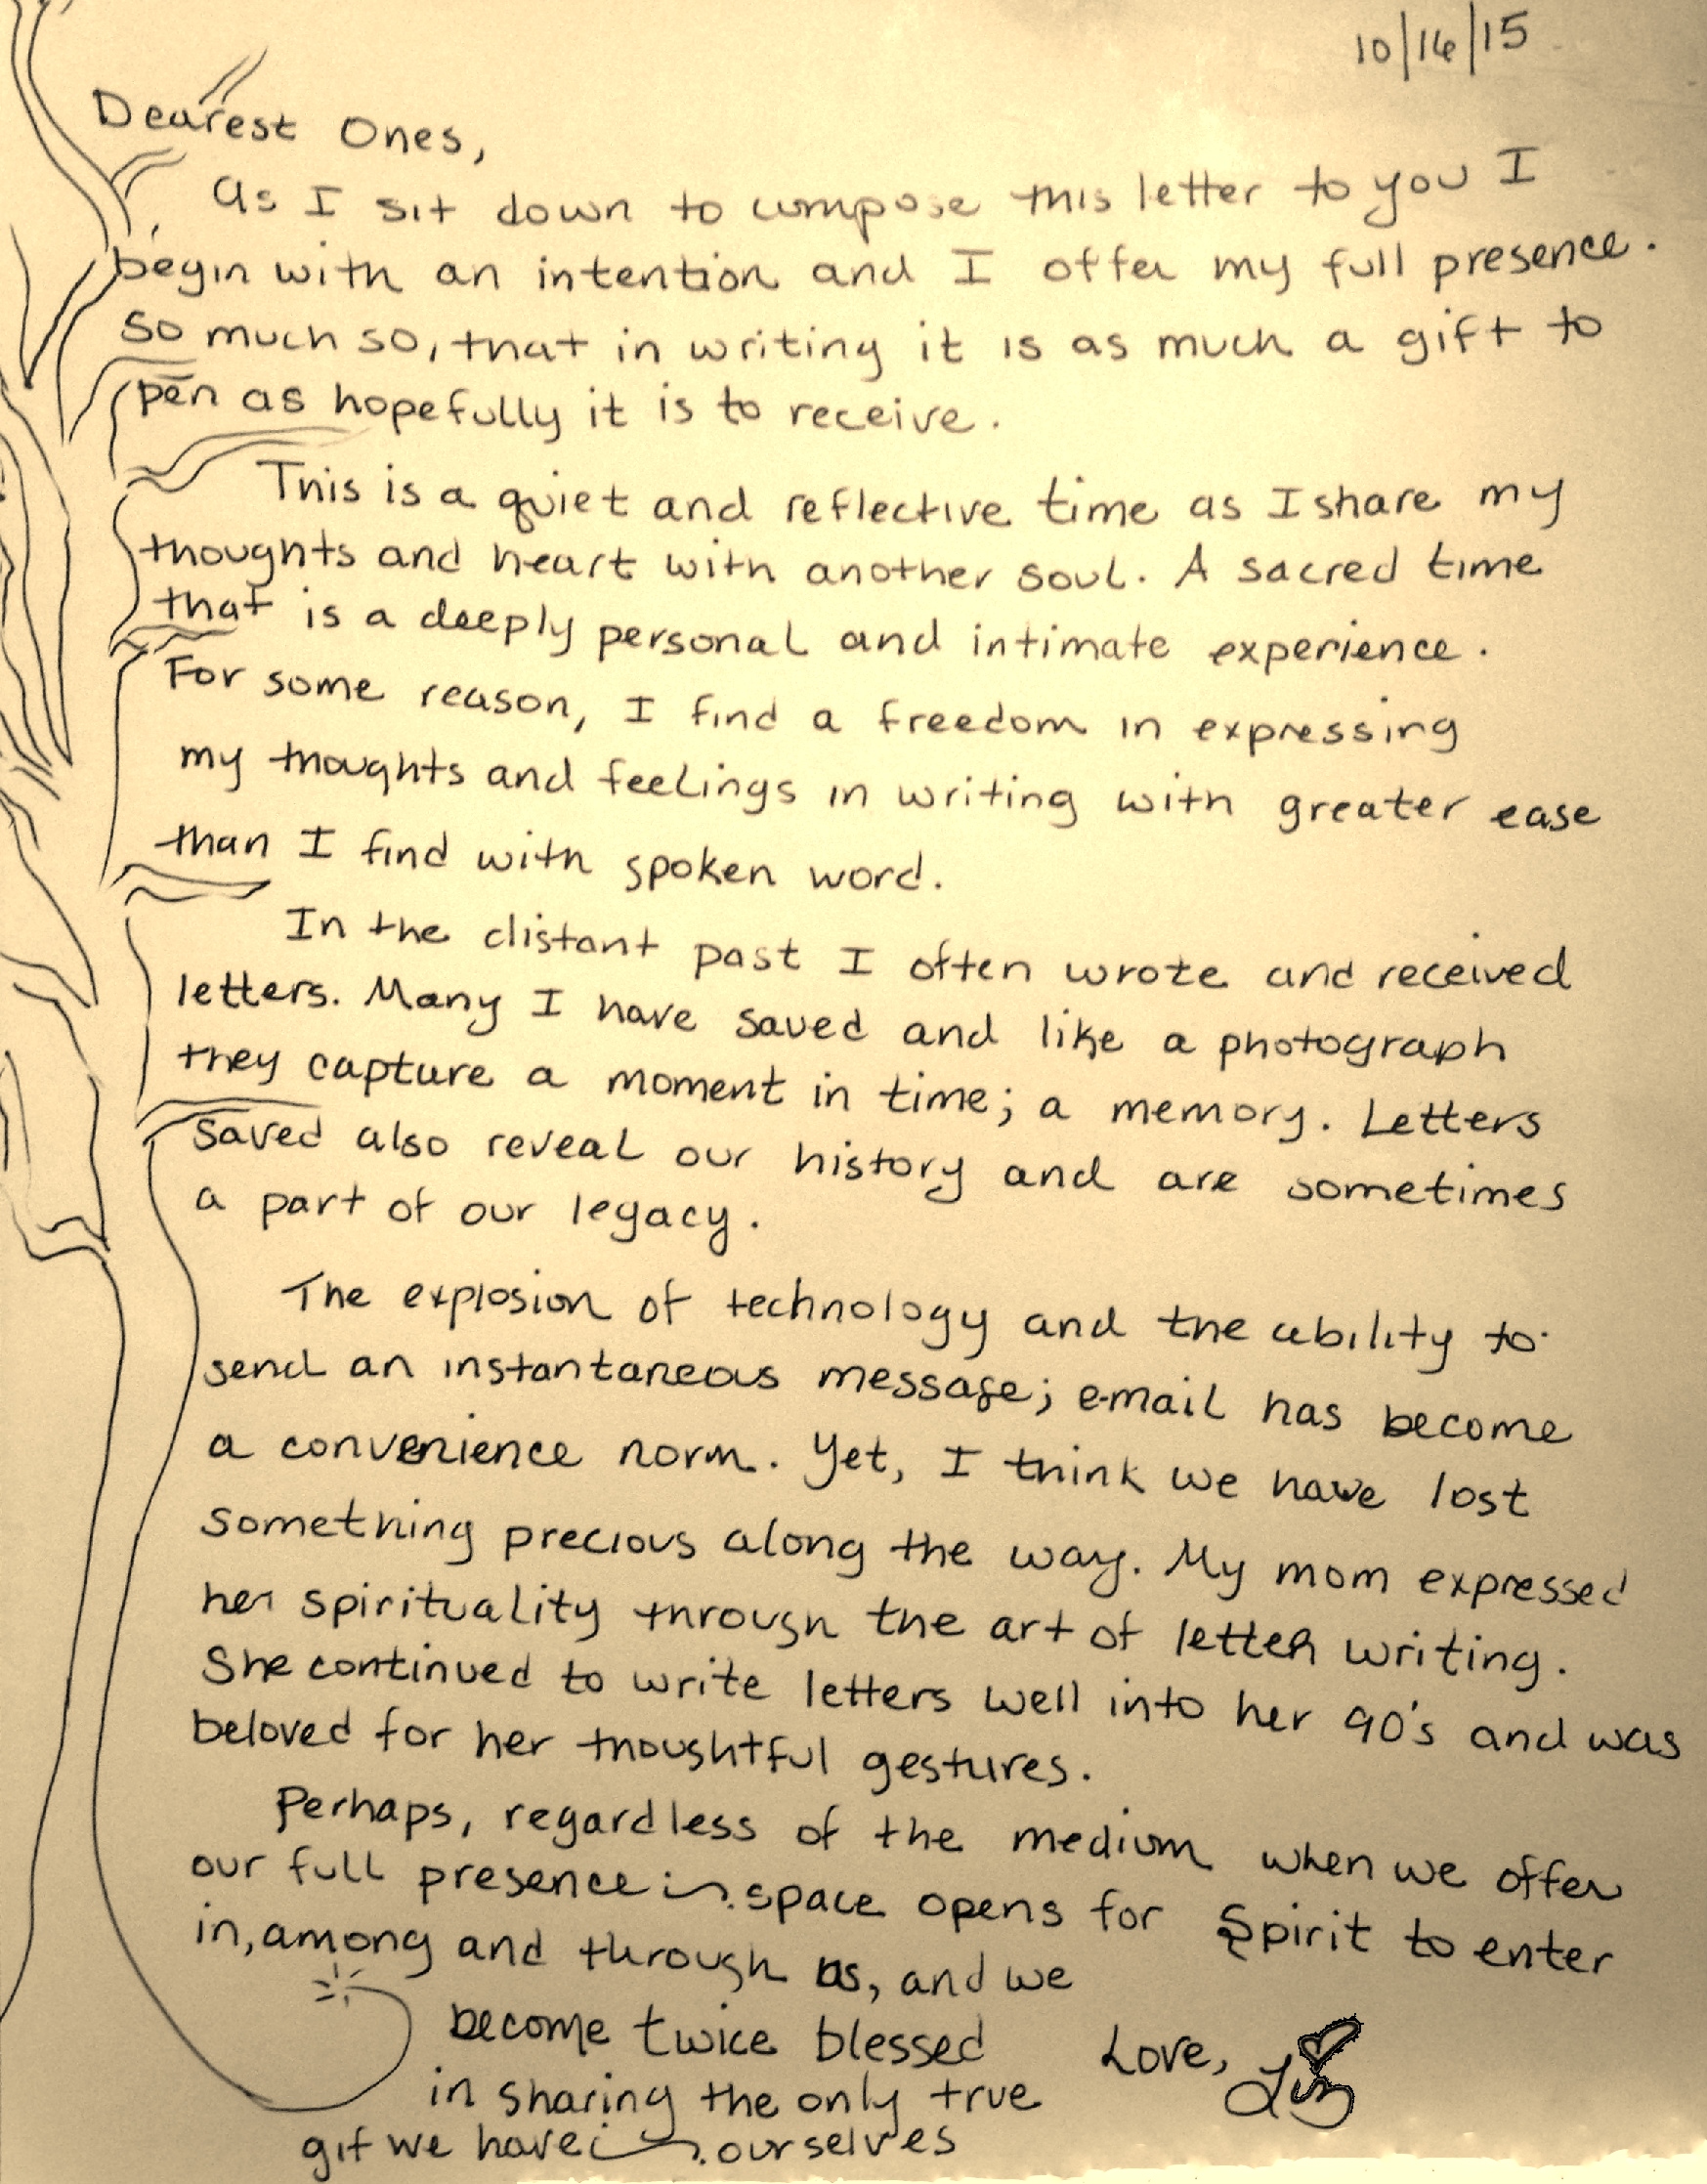 10/16/15
Dearest Ones,
As I sit down to compose this letter to you I
begin with an intention and I offer my full presence.
So much so, that in writing it is as much a gift to
pen as hopefully it is to receive.
This is a quiet and reflective time as I share my
thoughts and heart with another soul. A sacred time
that is a deeply personal and intimate experience.
For some reason, I find a freedom in expressing
my thoughts and feelings in writing with greater ease
than I find with spoken word.
In the distant past I often wrote and received
letters. Many I have saved and like a photograph
they capture a moment in time; a memory. Letters
saved also reveal our history and are sometimes
a part of our legacy.
The explosion of technology and the ability to
send an instantaneous message; e-mail has become
a convenience norm. Yet, I think we have lost
something precious along the way. My mom expressed
her spirituality through the art of letter writing.
She continued to write letters well into her 90's and was
beloved for her thoughtful gestures.
Perhaps, regardless of the medium when we offer
our full presence space opens for Spirit to enter
in, among and through us, and we
become twice blessed
in sharing the only true
gift we have ourselves
Love, Liz